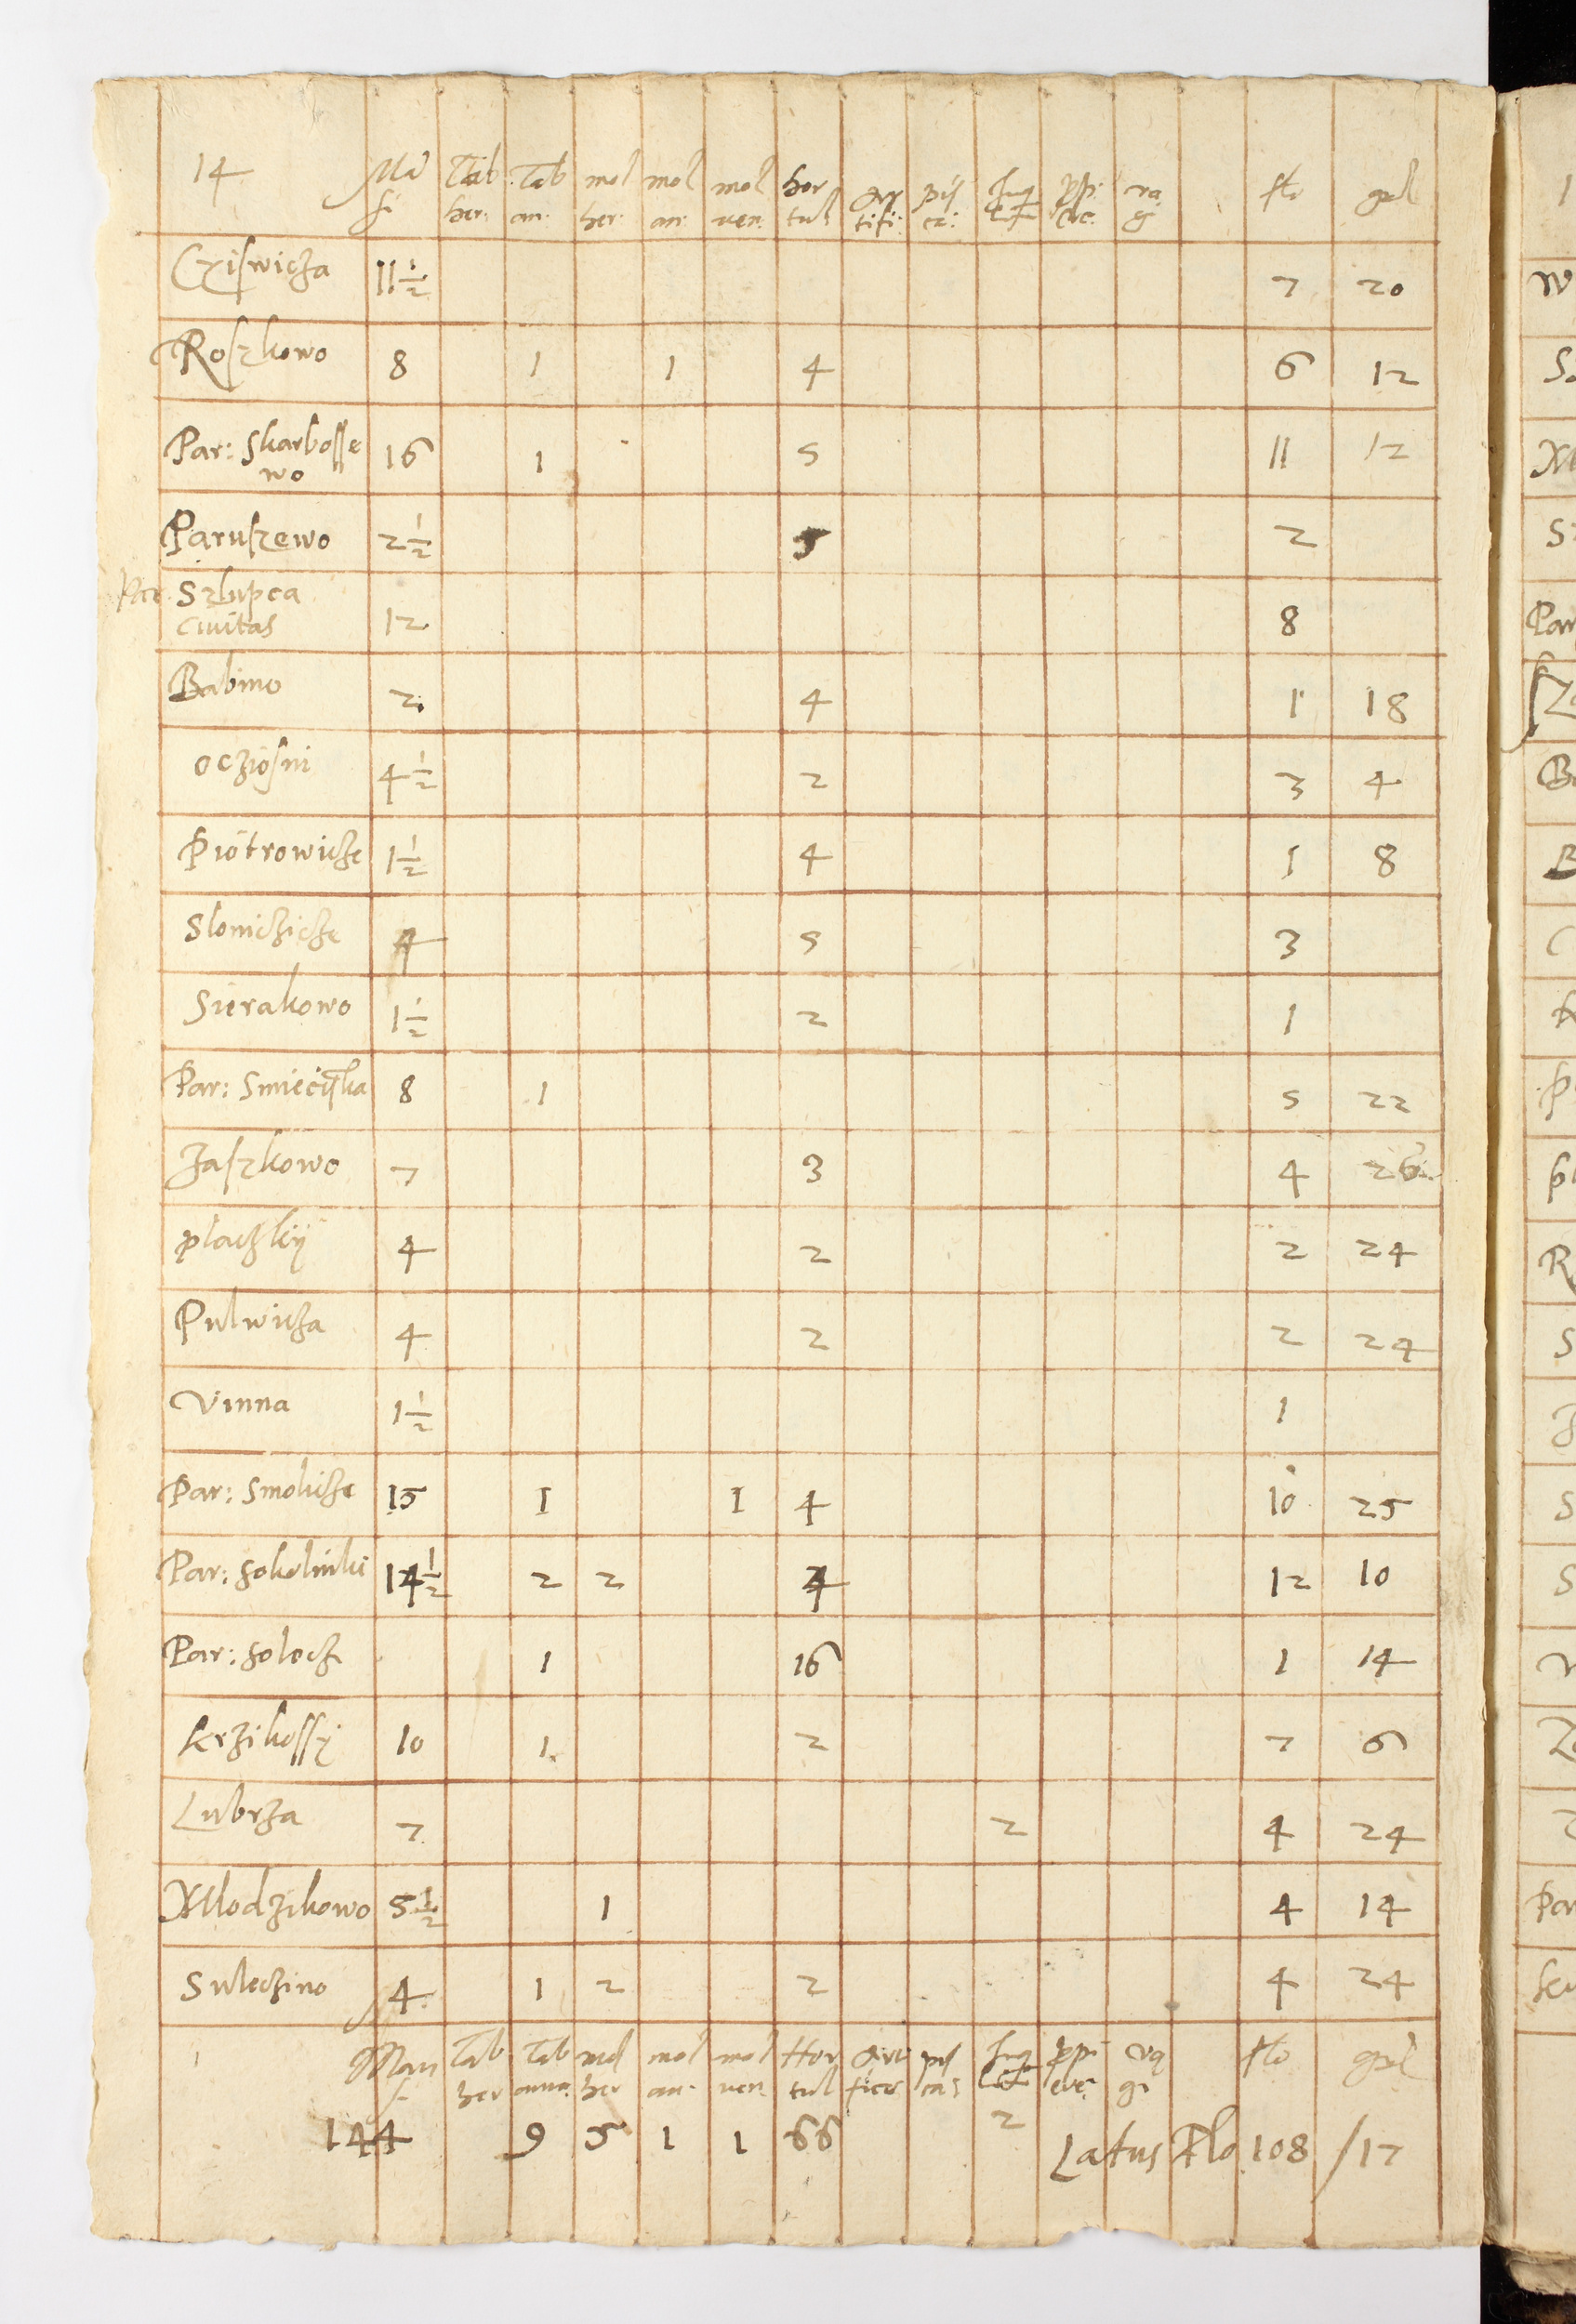 14 Ma Tab Tab mol mol mol hor Ar pis Inq ppi va flo gral
si her: an: her: an: ven: tul tifi: ca: eve: g
Cziswicza 11 1/2 7 20
Roszkowo 8 1 1 4 6 12
Par: Skarbosse 16 1 5 11 12
wo
Paruszewo 2 1/2 5 2
Par Szlupca
Ciuitas 12 8
Babino 2 4 1 18
Oczósni 4 1/2 2 3 4
Piótrowicze 1 1/2 4 1 8
Slomczicze 4 5 3
Sierakowo 1 1/2 2 1
Par: Smieciska 8 1 5 22
Jaszkowo 7 3 4 26
placzkÿ 4 2 2 24
Pulwicza 4 2 2 24
Vinna 1 1/2 1
Par: Smolicze 15 1 1 4 10 25
Par: Sokolniki 14 1/2 2 2 4 12 10
Par: Solecz 1 16 1 14
Krzikossy 10 1 2 7 6
Lubrza 7 2 4 24
Mlodzikowo 5 1/2 1 4 14
Suleczino 4 1 2 2 4 24
Man Tab Tab mol mol mol Hor Arti pis Inq ppi va flo gral
s her anna her an ven tul ficer cas eve gi
144 9 5 1 1 66 2 Latus Flo 108 / 17